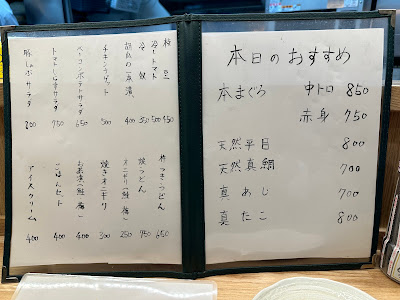 枝豆 450
冷トマト 500
冷奴 350
胡瓜の一本漬 400
チキンナゲット 500
ベーコンポテトサラダ 650
トマトしらすサラダ 750
豚しゃぶサラダ 800
うどん 650
焼うどん 750
オニギリ(鮭・梅) 250
焼きオニギリ 300
お茶漬(鮭・梅) 400
ごはんセット 400
アイスクリーム 400
本日のおすすめ
本まぐろ 中トロ 850
赤身 750
天然平目 800
天然真鯛 700
真あじ 700
真たこ 800